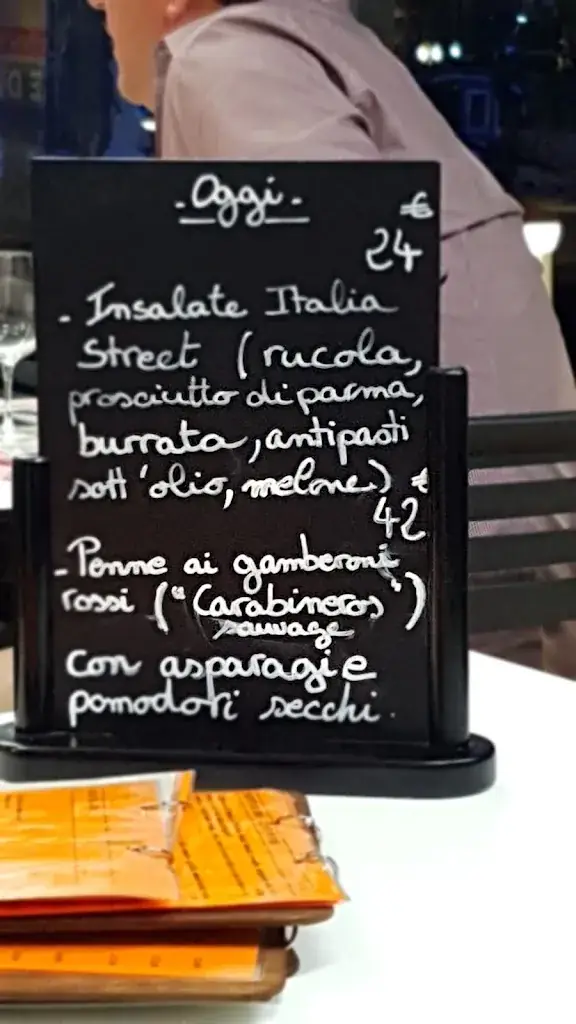 - Oggi -
€
24
- Insalate Italia
Street (rucola,
prosciutto di parma,
burrata, antipasti
sott'olio, melone) €
42
- Penne ai gamberoni
rossi ("Carabineros")
sauvage
con asparagi e
pomodori secchi.